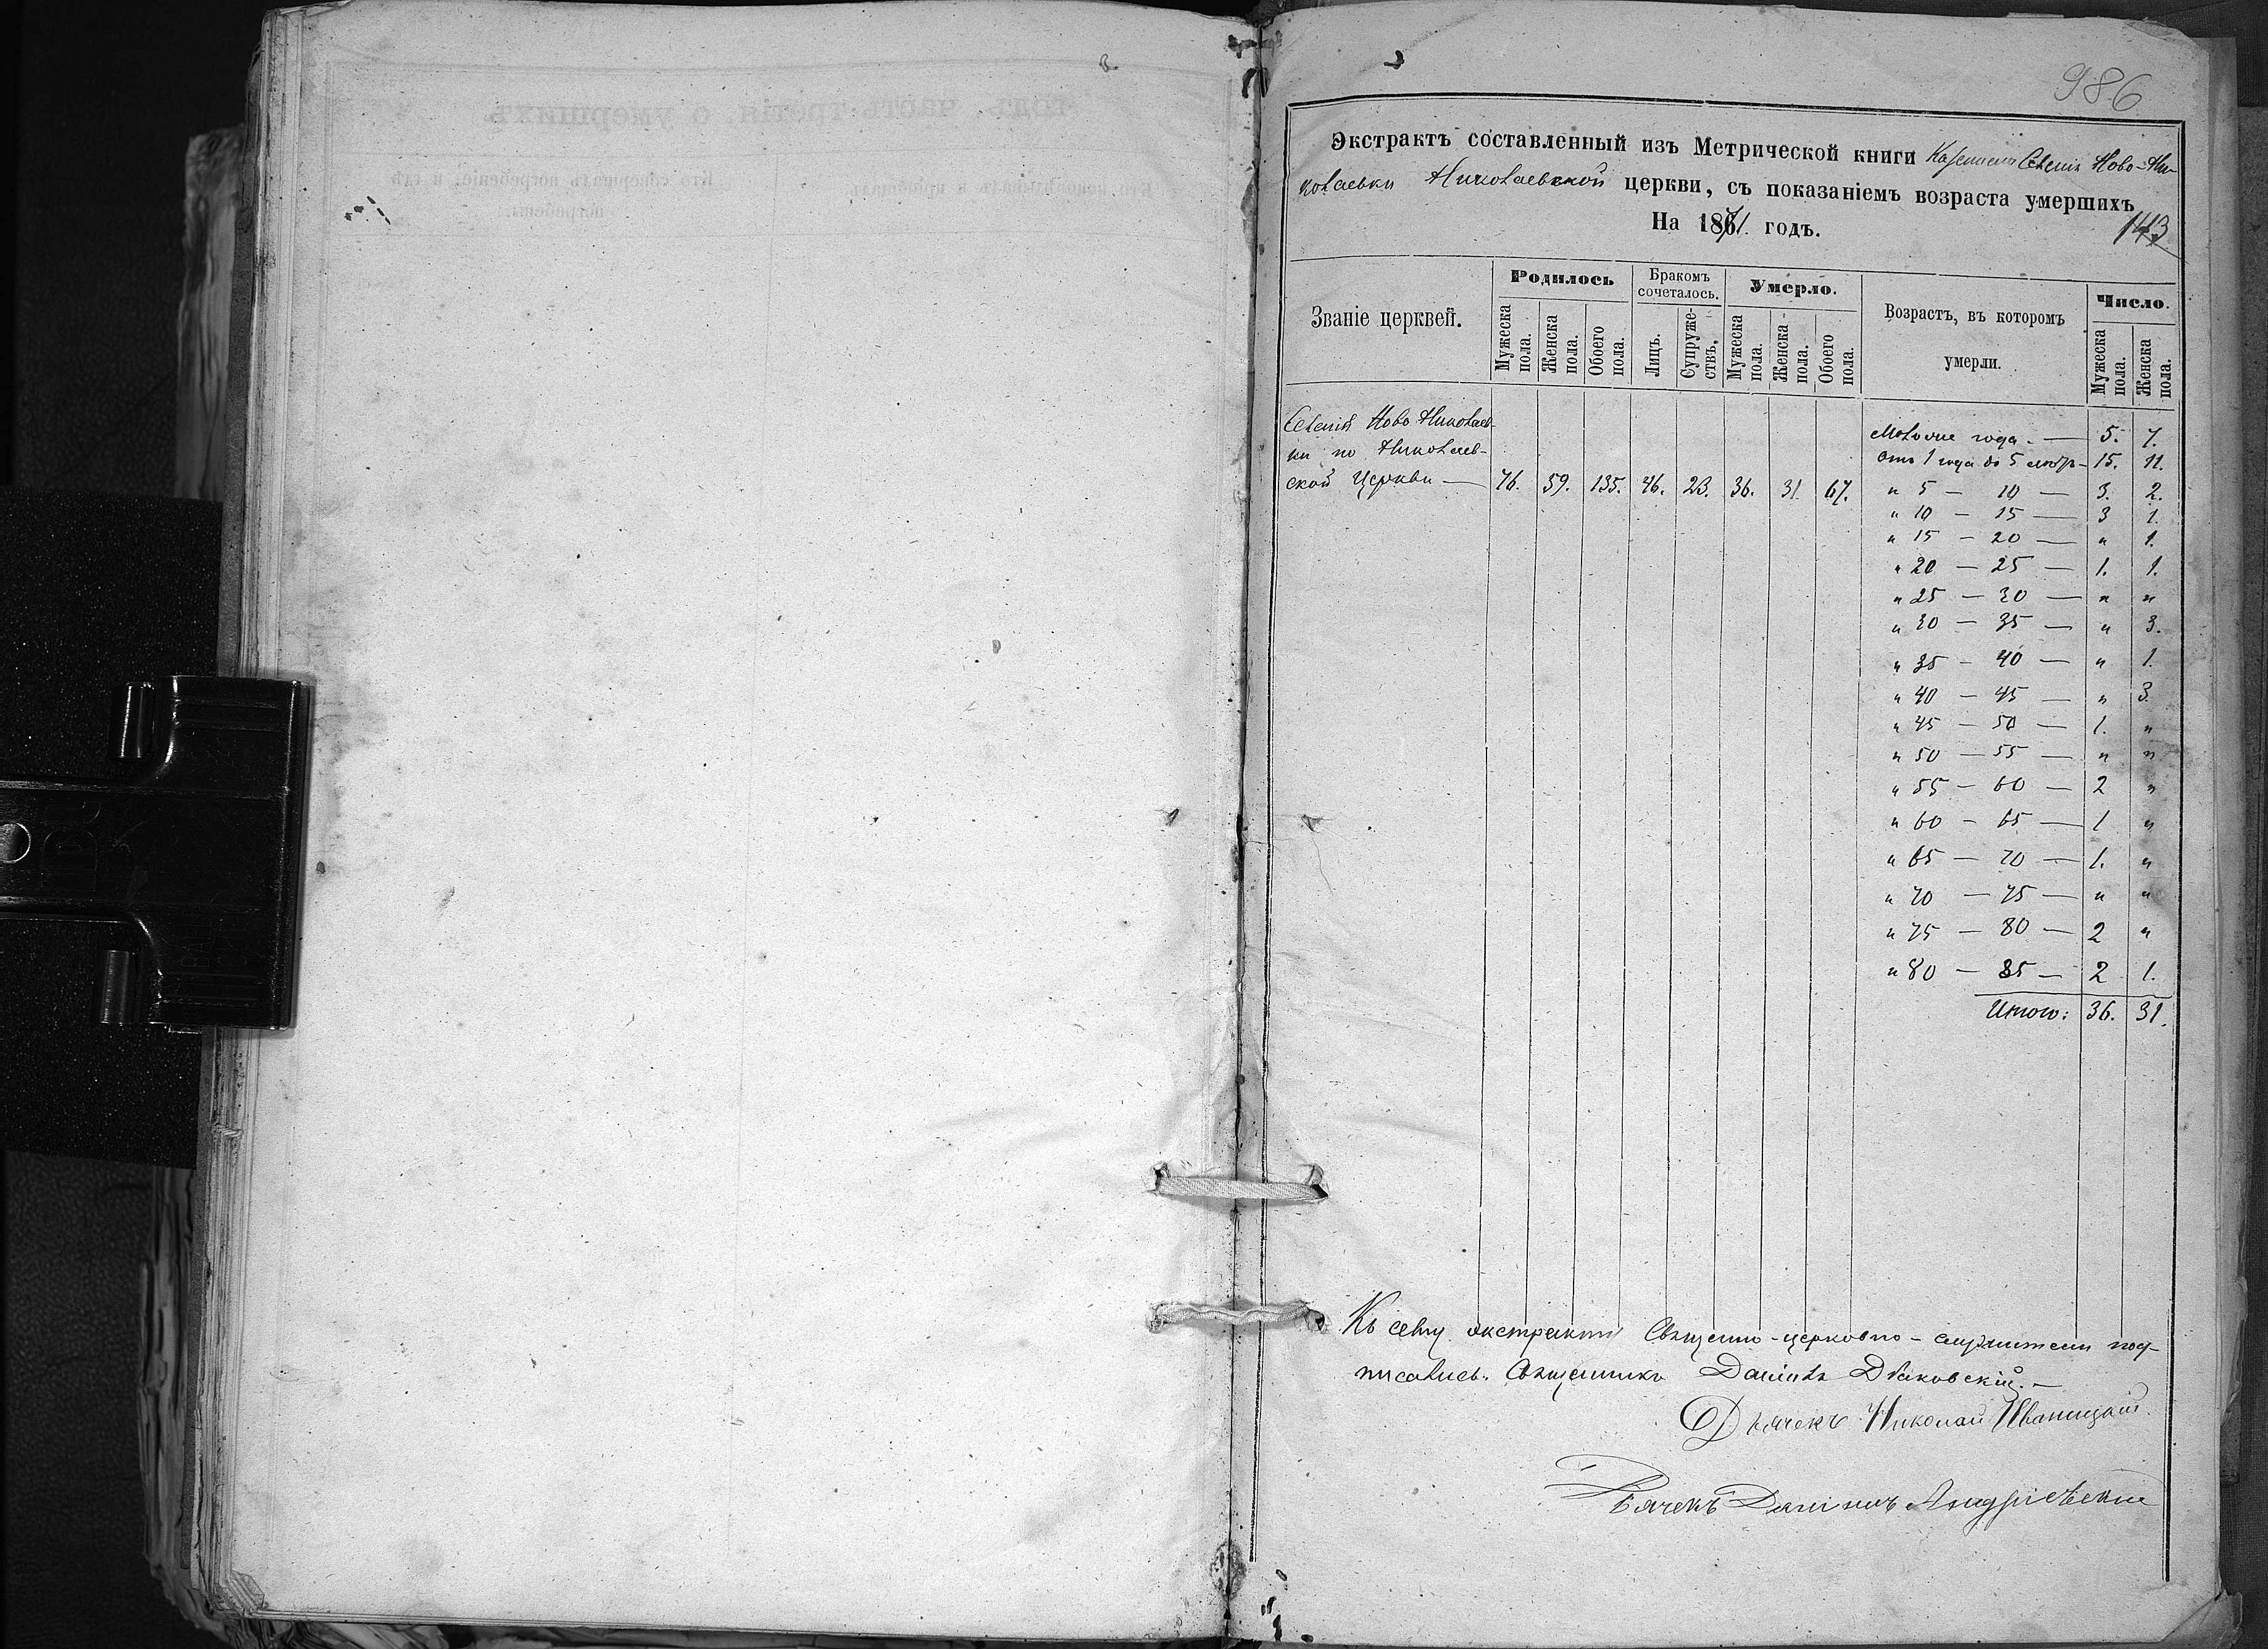 986
Экстрактъ составленный изъ Метрической книги Казеннаго Селенія Ново-Ни-
колаевки Николаевской церкви, съ показаніемъ возраста умершихъ
На 1871. годъ.
143
Званіе церквей. Родилось Бракомъ сочеталось. Умерло. Возрастъ, въ которомъ умерли. Число.
Мужеска пола. Женска пола. Обоего пола. Лицъ. Супружествъ. Мужеска пола. Женска пола. Обоего пола. Мужеска пола. Женска пола.
Селенія Ново Николаев-
ки по Николаев-
ской Церкви — 76. 59. 135. 46. 23. 36. 31. 67.
Моложе года — 5. 7.
Отъ 1 года до 5 — 15. 11.
" 5 — 10 — 3. 2.
" 10 — 15 — 3 1.
" 15 — 20 — " 1.
" 20 — 25 — 1. 1.
" 25 — 30 — " "
" 30 — 35 — " 3.
" 35 — 40 — " 1.
" 40 — 45 — " 3.
" 45 — 50 — 1. "
" 50 — 55 — " "
" 55 — 60 — 2 "
" 60 — 65 — 1 "
" 65 — 70 — 1. "
" 70 — 75 — " "
" 75 — 80 — 2 "
" 80 — 85 — 2 1.
Итого: 36. 31.
Къ сему экстракту Священно-церковно-служители под-
писались: Священникъ Даніилъ Дьяковскій. —
Дьячекъ Николай Иваницкій.
Дьячекъ Даніилъ Андріевскій